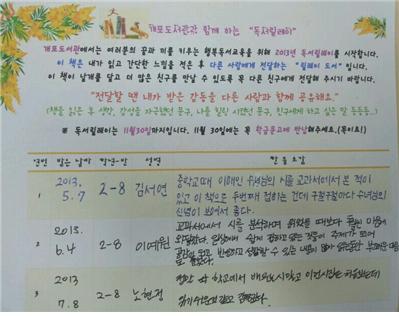 개포도서관과 함께 하는 "독서릴레이"
개포도서관에서는 여러분의 꿈과 끼를 키우는 행복독서교육을 위해 2013년 독서릴레이를 시작합니다.
이 책은 내가 읽고 간단한 느낌을 적은 후 다른 사람에게 전달하는 "릴레이 도서"입니다.
이 책이 날개를 달고 더 많은 친구를 만날 수 있도록 꼭 다른 친구에게 전달해 주시기 바랍니다.
"전달할 땐 내가 받은 감동을 다른 사람과 함께 공유해요."
(책을 읽은 후 생각, 감성을 자극했던 문구, 나를 힐링 시켰던 문구, 친구에게 하고 싶은 말 등등등..)
※ 독서릴레이는 11월30일까지입니다. 11월 30일에는 꼭 학급문고에 반납해주세요.(복이요!)
받은 날짜 학년-반 성명
1 2013. 5.7 2-8 김서연 중학교때 이해인 수녀님의 시를 교과서에서 본 적이
있고 이 책으로 두번째 접하는 건데 구절구절마다 수녀님의
신념이 보여서 좋다.
2 2013. 6.4 2-8 이예원 교과서에서 시를 분석하며 읽었을 때보다 훨씬 마음에
와닿았다. 일상에서 쉽게 접하고 있는 것들이 주제가 되어
3 2013 7.8 2-8 노현정